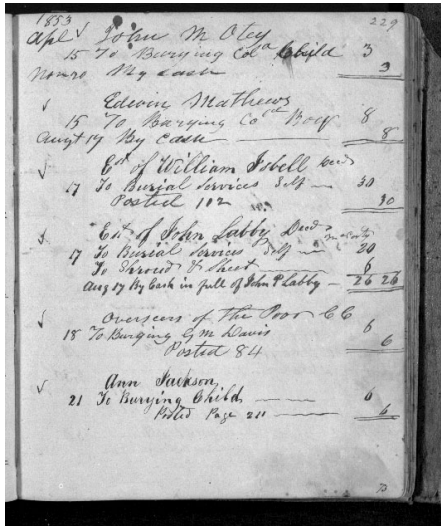 1853 229
Apl John M Otey
15 To Burying Cold Child 3
Nov 20 By Cash 3
Edwin Mathews
15 To Burying Cold Boy 8
Augt 17 By Cash 8
Est of William Isbell Decd
17 To Burial Services Self 30
Posted 112 30
Est of John Labby Decd
17 To Burial Services Self 20
To Shroud & Sheet 6
Aug 17 By Cash in full of John P Labby 26 26
Overseers of the Poor C C
18 To Burying G M Davis 6
Posted 84 6
Ann Jackson
21 To Burying Child 6
Posted Page 211 6